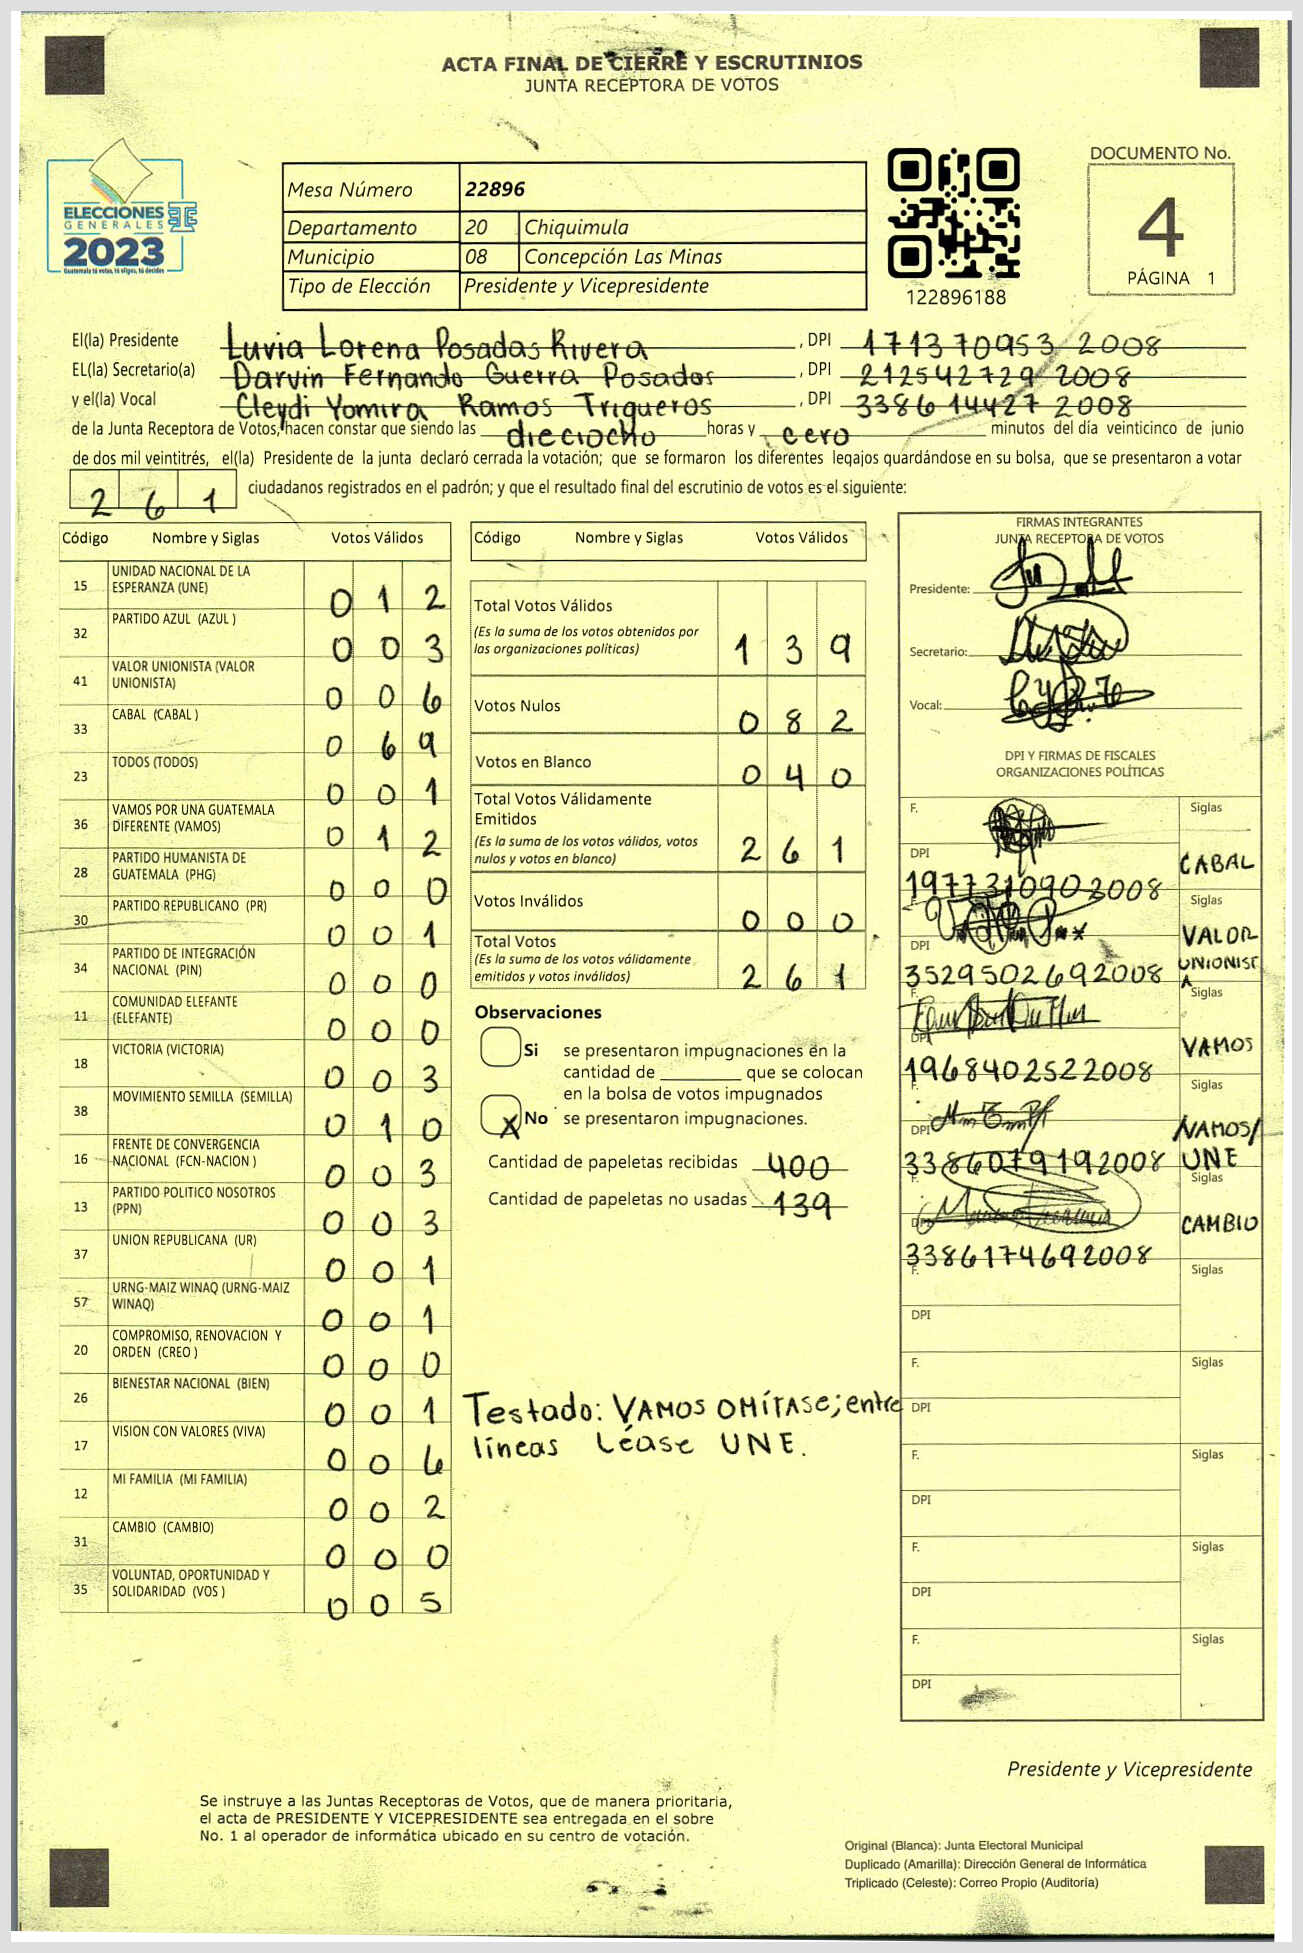 ACTA FINAL DE CIERRE Y ESCRUTINIOS
JUNTA RECEPTORA DE VOTOS
ELECCIONES
GENERALES
2023
Guatemala tú votas, tú eliges, tú decides
Mesa Número 22896
Departamento 20 Chiquimula
Municipio 08 Concepción Las Minas
Tipo de Elección Presidente y Vicepresidente
122896188
DOCUMENTO No.
4
PÁGINA 1
El(la) Presidente Luvia Lorena Posadas Rivera , DPI 171370953 2008
EL(la) Secretario(a) Darvin Fernando Guerra Posadas , DPI 212542729 2008
y el(la) Vocal Cleydi Yomira Ramos Trigueros , DPI 338614427 2008
de la Junta Receptora de Votos, hacen constar que siendo las dieciocho horas y cero minutos del día veinticinco de junio
de dos mil veintitrés, el(la) Presidente de la junta declaró cerrada la votación; que se formaron los diferentes legajos guardándose en su bolsa, que se presentaron a votar
261 ciudadanos registrados en el padrón; y que el resultado final del escrutinio de votos es el siguiente:
Código Nombre y Siglas Votos Válidos
15 UNIDAD NACIONAL DE LA ESPERANZA (UNE) 012
32 PARTIDO AZUL (AZUL ) 003
41 VALOR UNIONISTA (VALOR UNIONISTA) 006
33 CABAL (CABAL ) 069
23 TODOS (TODOS) 001
36 VAMOS POR UNA GUATEMALA DIFERENTE (VAMOS) 012
28 PARTIDO HUMANISTA DE GUATEMALA (PHG) 000
30 PARTIDO REPUBLICANO (PR) 001
34 PARTIDO DE INTEGRACIÓN NACIONAL (PIN) 000
11 COMUNIDAD ELEFANTE (ELEFANTE) 000
18 VICTORIA (VICTORIA) 003
38 MOVIMIENTO SEMILLA (SEMILLA) 010
16 FRENTE DE CONVERGENCIA NACIONAL (FCN-NACION ) 003
13 PARTIDO POLITICO NOSOTROS (PPN) 003
37 UNION REPUBLICANA (UR) 001
57 URNG-MAIZ WINAQ (URNG-MAIZ WINAQ) 001
20 COMPROMISO, RENOVACION Y ORDEN (CREO ) 000
26 BIENESTAR NACIONAL (BIEN) 001
17 VISION CON VALORES (VIVA) 006
12 MI FAMILIA (MI FAMILIA) 002
31 CAMBIO (CAMBIO) 000
35 VOLUNTAD, OPORTUNIDAD Y SOLIDARIDAD (VOS ) 005
Código Nombre y Siglas Votos Válidos
Total Votos Válidos
(Es la suma de los votos obtenidos por
las organizaciones políticas) 139
Votos Nulos 082
Votos en Blanco 040
Total Votos Válidamente
Emitidos
(Es la suma de los votos válidos, votos
nulos y votos en blanco) 261
Votos Inválidos 000
Total Votos
(Es la suma de los votos válidamente
emitidos y votos inválidos) 261
Observaciones
Si se presentaron impugnaciones en la
cantidad de ________ que se colocan
en la bolsa de votos impugnados
X No se presentaron impugnaciones.
Cantidad de papeletas recibidas 400
Cantidad de papeletas no usadas 139
Testado: VAMOS OMÍTASE; entre
líneas Léase UNE.
FIRMAS INTEGRANTES
JUNTA RECEPTORA DE VOTOS
Presidente:
Secretario:
Vocal:
DPI Y FIRMAS DE FISCALES
ORGANIZACIONES POLÍTICAS
F. Siglas
DPI 1977310902008 CABAL
F. Siglas
DPI 3529502692008 VALOR UNIONISTA
F. Siglas
DPI 1968402522008 VAMOS
F. Siglas
DPI 3386079192008 VAMOS/ UNE
F. Siglas
DPI 3386174692008 CAMBIO
F. Siglas
DPI
F. Siglas
DPI
F. Siglas
DPI
F. Siglas
DPI
F. Siglas
DPI
Presidente y Vicepresidente
Se instruye a las Juntas Receptoras de Votos, que de manera prioritaria,
el acta de PRESIDENTE Y VICEPRESIDENTE sea entregada en el sobre
No. 1 al operador de informática ubicado en su centro de votación.
Original (Blanca): Junta Electoral Municipal
Duplicado (Amarilla): Dirección General de Informática
Triplicado (Celeste): Correo Propio (Auditoría)